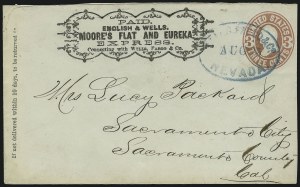 PAID.
ENGLISH & WELLS,
MOORE'S FLAT AND EUREKA
EXPRESS.
Connecting with Wells, Fargo & Co.
UNITED STATES
AUG
NEVADA
If not delivered within 10 days, to be returned to
Mrs Lucy Packard
Sacramento City
Sacramento County
Cal